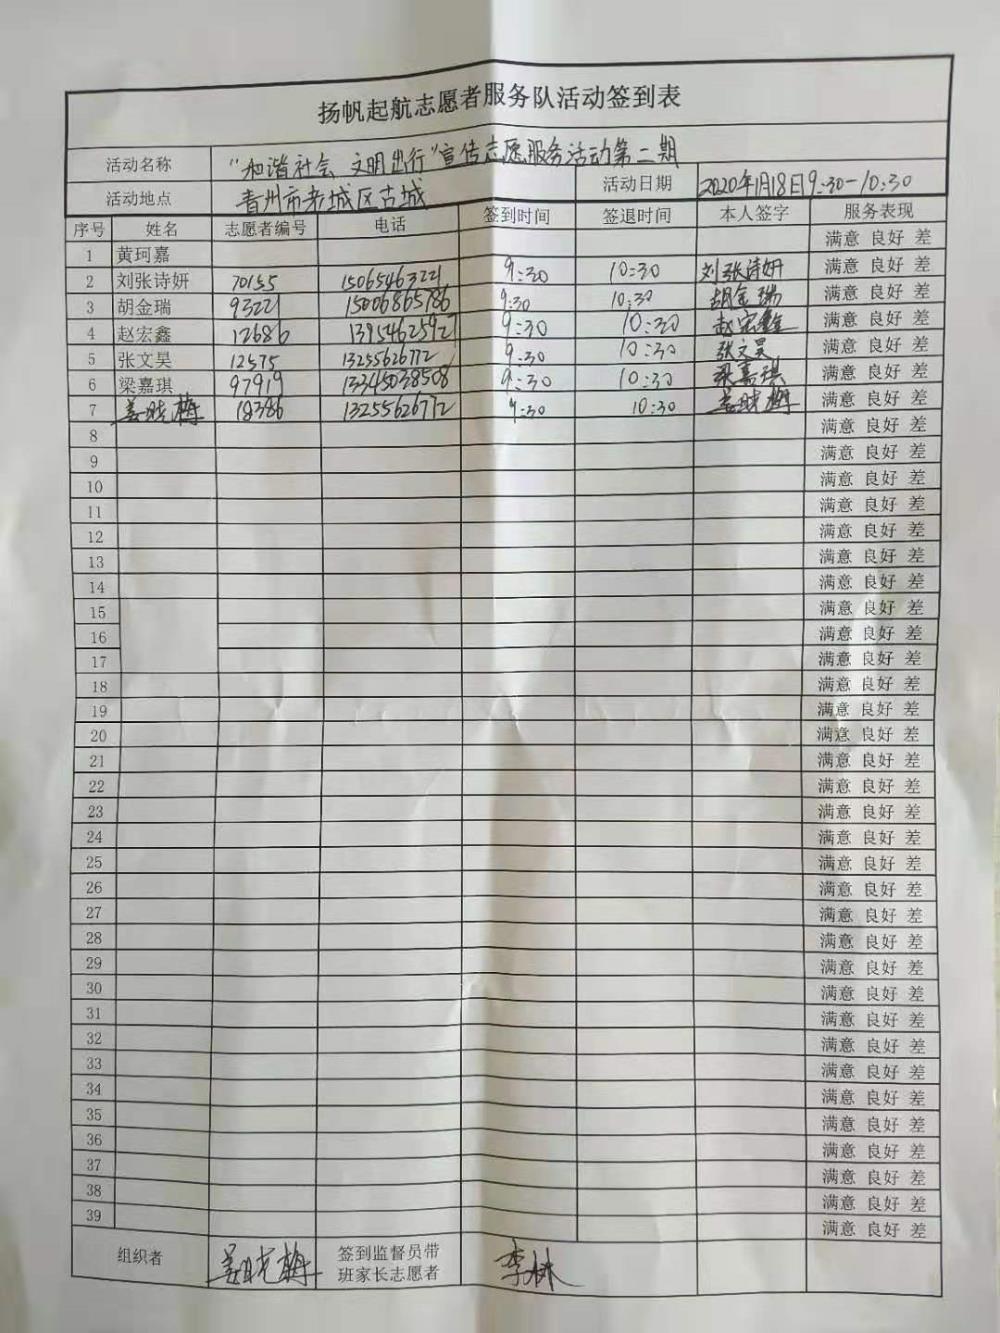 扬帆起航志愿者服务队活动签到表
活动名称 “和谐社会 文明出行”宣传志愿服务活动第二期
活动地点 青州市老城区古城 活动日期 2020年1月18日9:30-10:30
序号 姓名 志愿者编号 电话 签到时间 签退时间 本人签字 服务表现
1 黄珂嘉 满意 良好 差
2 刘张诗妍 70155 15065463221 9:30 10:30 刘张诗妍 满意 良好 差
3 胡金瑞 93221 15006865786 9:30 10:30 胡金瑞 满意 良好 差
4 赵宏鑫 12686 13954625927 9:30 10:30 赵宏鑫 满意 良好 差
5 张文昊 12575 13255626772 9:30 10:30 张文昊 满意 良好 差
6 梁嘉琪 97919 13345038508 9:30 10:30 梁嘉琪 满意 良好 差
7 姜晓梅 18386 13255626772 9:30 10:30 姜晓梅 满意 良好 差
8 满意 良好 差
9 满意 良好 差
10 满意 良好 差
11 满意 良好 差
12 满意 良好 差
13 满意 良好 差
14 满意 良好 差
15 满意 良好 差
16 满意 良好 差
17 满意 良好 差
18 满意 良好 差
19 满意 良好 差
20 满意 良好 差
21 满意 良好 差
22 满意 良好 差
23 满意 良好 差
24 满意 良好 差
25 满意 良好 差
26 满意 良好 差
27 满意 良好 差
28 满意 良好 差
29 满意 良好 差
30 满意 良好 差
31 满意 良好 差
32 满意 良好 差
33 满意 良好 差
34 满意 良好 差
35 满意 良好 差
36 满意 良好 差
37 满意 良好 差
38 满意 良好 差
39 满意 良好 差
组织者 姜晓梅 签到监督员带
班家长志愿者 李林